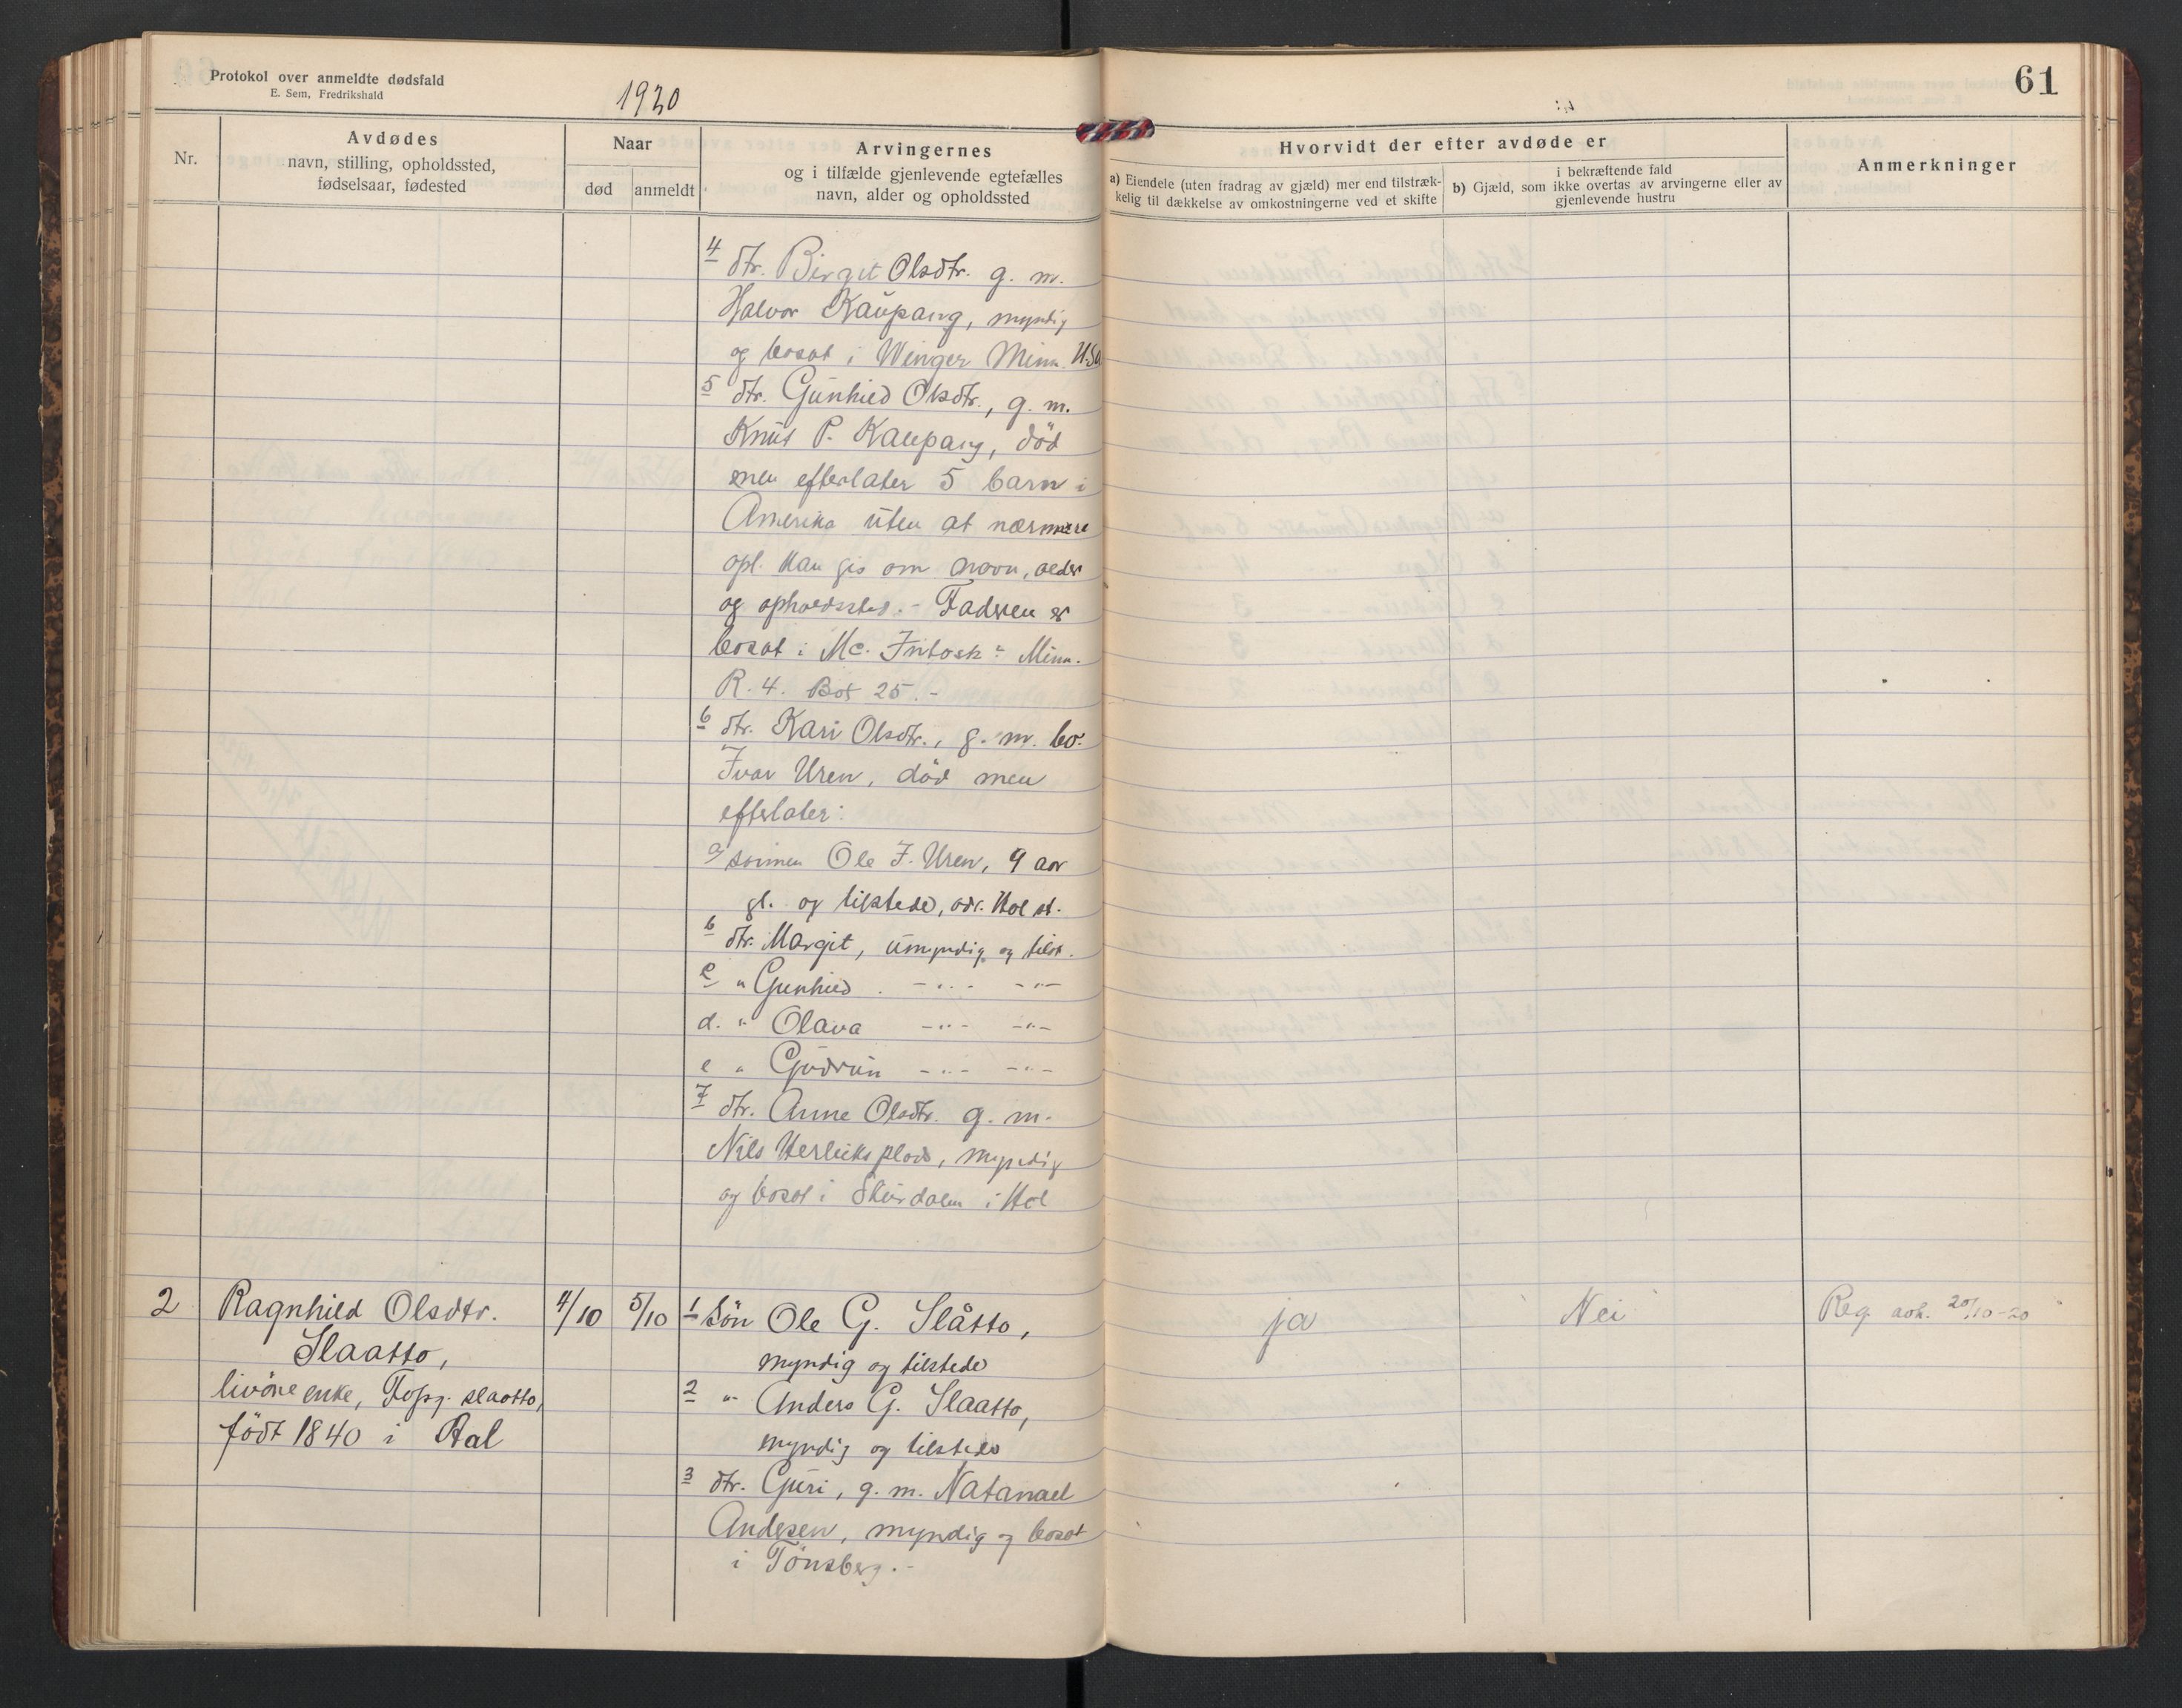 Protokol over anmeldte dødsfald
E. Sem, Fredrikshald
1920
61
Nr.
Avdødes
navn, stilling, opholdssted,
fødselsaar, fødested
Naar
død
anmeldt
Arvingernes
og i tilfælde gjenlevende egtefælles
navn, alder og opholdssted
Hvorvidt der efter avdøde er
a) Eiendele (uten fradrag av gjæld) mer end tilstræk-
kelig til dækkelse av omkostningerne ved et skifte
i bekræftende fald
b) Gjæld, som ikke overtas av arvingerne eller av
gjenlevende hustru
Anmerkninger
4 dtr. Birgit Olsdtr. g. m.
Halvor Kaupang, myndig
og bosat i Winger Minn. U.S.A
5 dtr. Gunhild Olsdtr., g. m.
Knut P. Kaupang, död
men efterlater 5 barn i
Amerika uten at nærmere
opl. kan gis om navn, alder
og opholdssted. - Faderen er
bosat i Mc. Intosh Minn.
R. 4. Box 25. -
6 dtr. Kari Olsdtr., g. m. bo.
Ivar Uren, död men
efterlater:
a sönnen Ole I. Uren, 9 aar
gl. og tilstede, adr. Hol st.
b dtr. Margit, umyndig og tilst.
c " Gunhild . - " - - " -
d. " Olava - " - - " -
e " Gudrun - " - - " -
7 dtr. Anne Olsdtr. g. m.
Nils Herleiksplads, myndig
og bosat i Skurdalen i Hol
2
Ragnhild Olsdtr.
Slaatto,
enke, slaatto,
födt 1840 i Aal
4/10
5/10
1 Sön Ole G. Slåtto,
myndig og tilstede
2 " Anders G. Slaatto,
myndig og tilstede
3 dtr. Guri, g. m. Natanael
Andesen, myndig og bosat
i Tönsberg. -
ja
Nei
Reg. 20/10-20